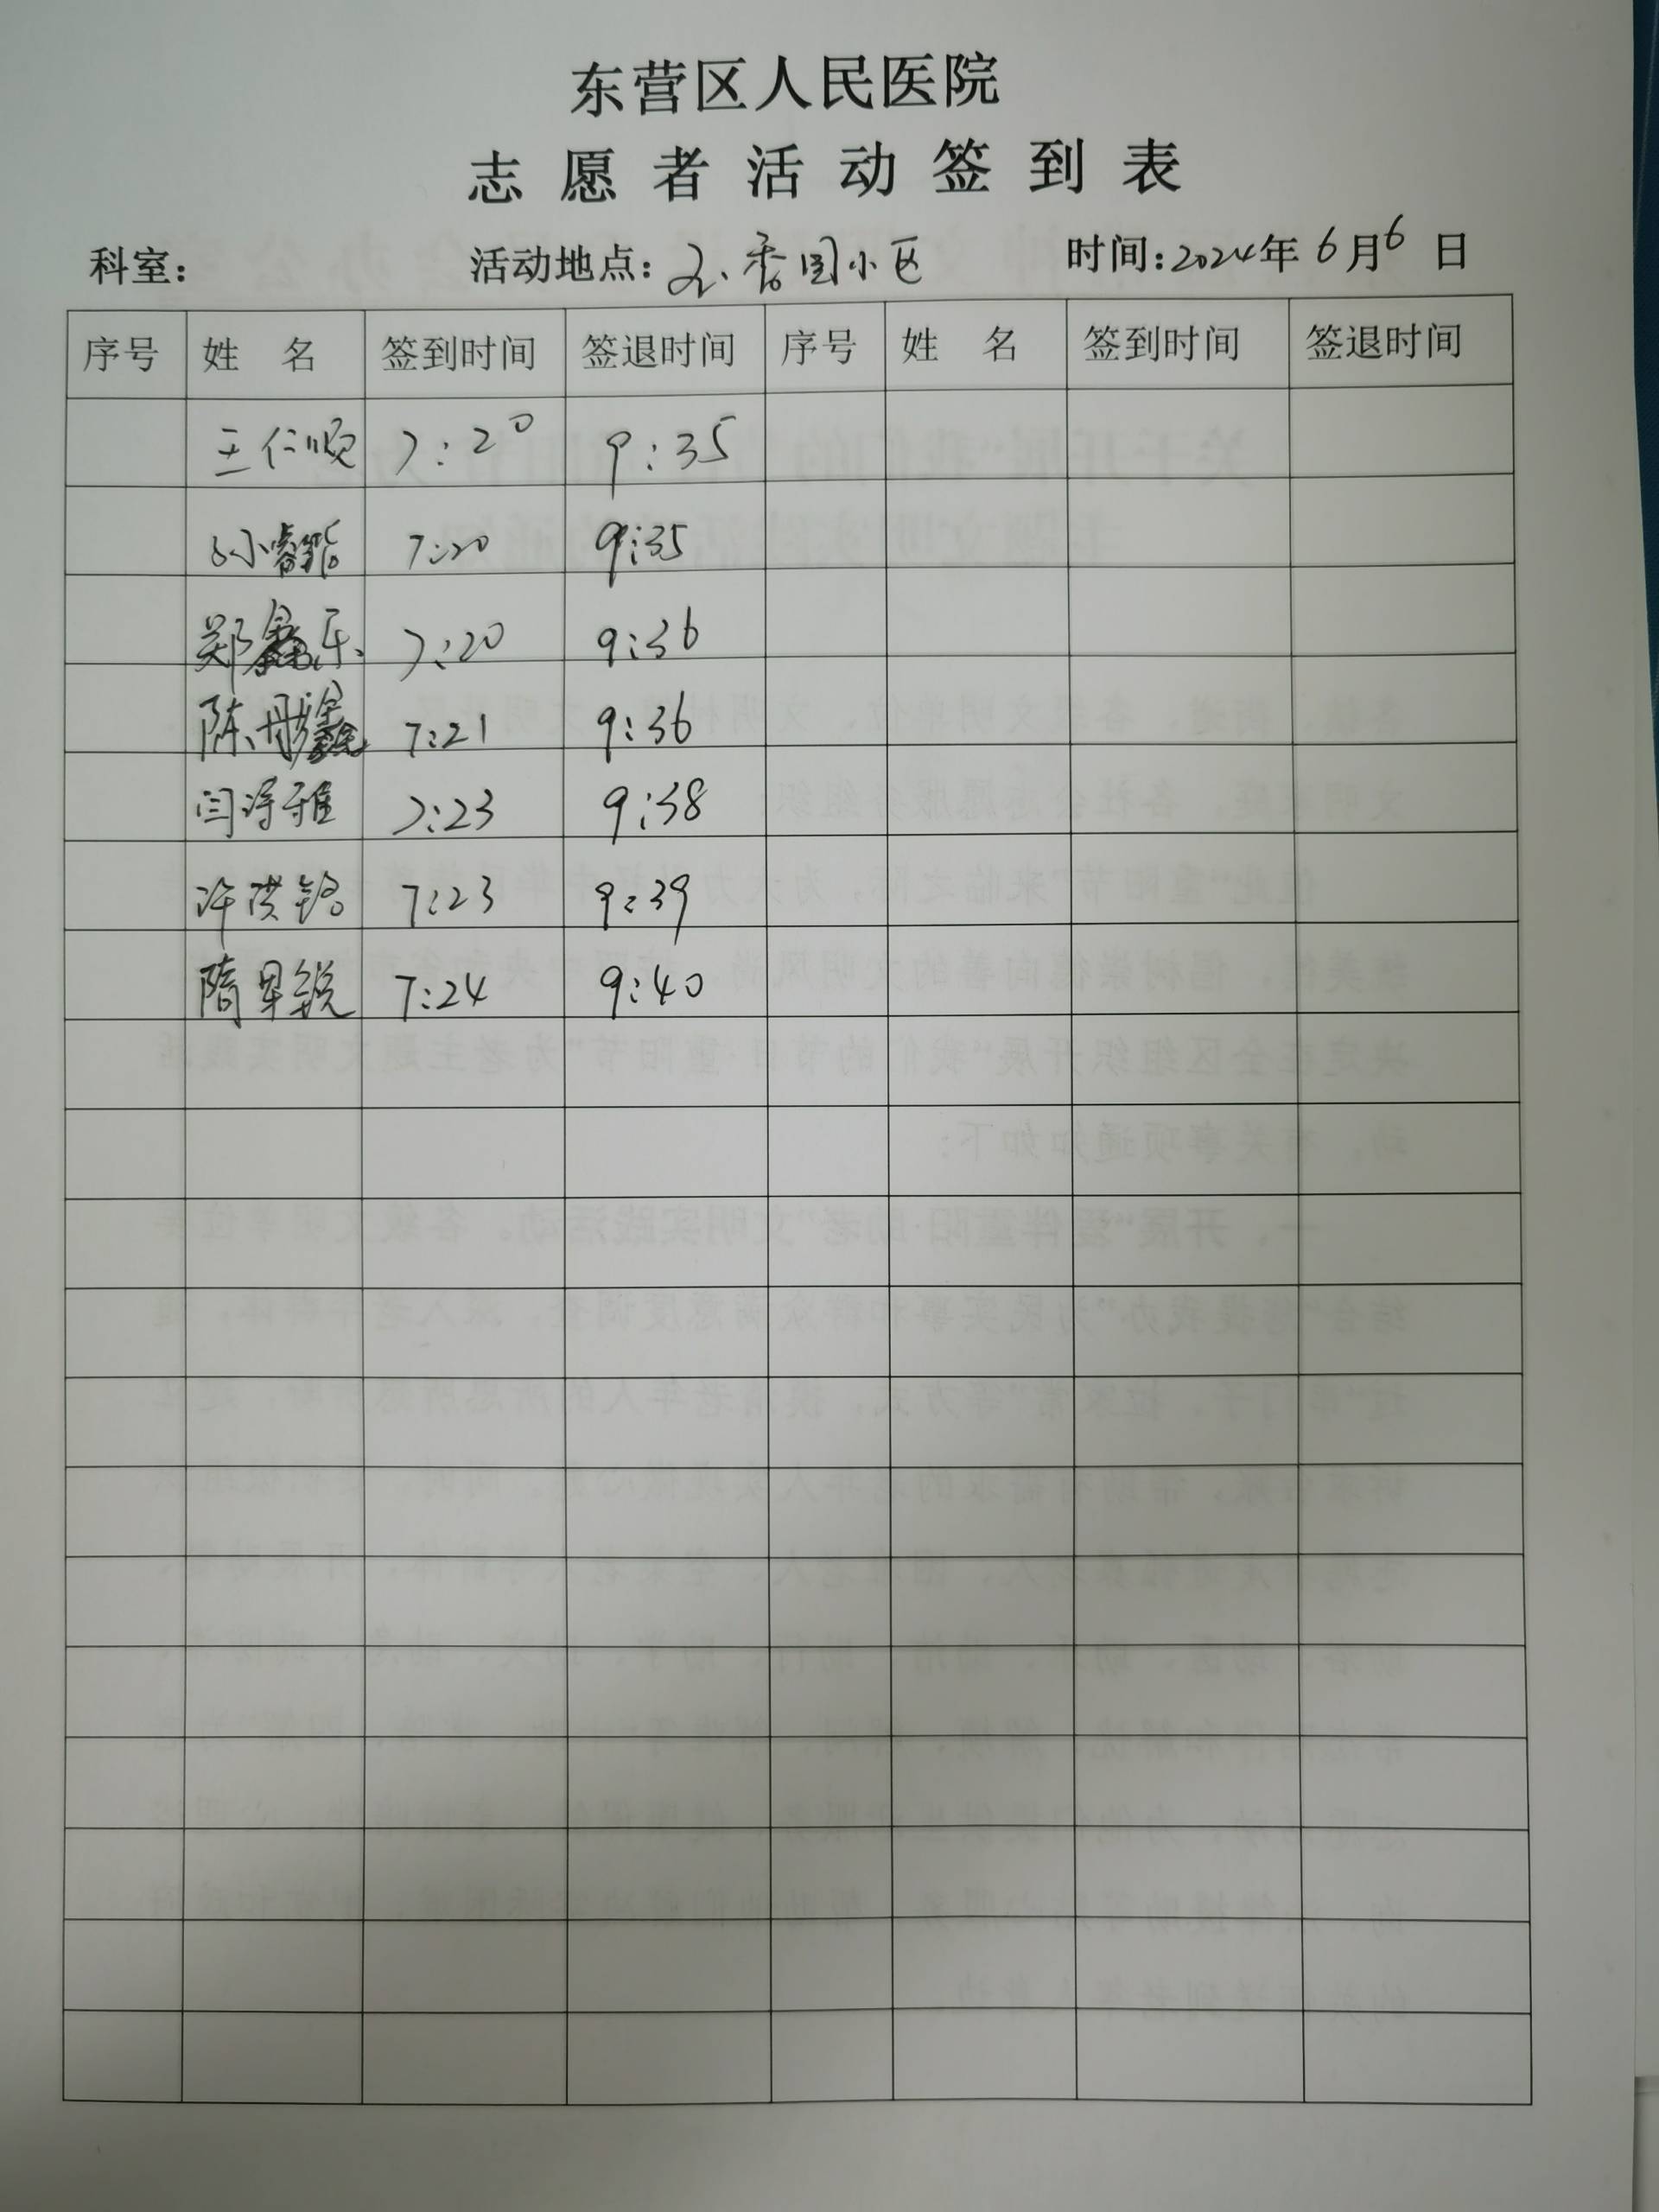 东营区人民医院
志愿者活动签到表
科室: 活动地点: 香园小区 时间:2024年6月6日
序号 姓 名 签到时间 签退时间 序号 姓 名 签到时间 签退时间
王仁顺 7:20 9:35
孙睿 7:20 9:35
郑鑫乐 7:20 9:36
陈丹 7:21 9:36
闫雅 7:23 9:38
许洪铭 7:23 9:39
隋昊锐 7:24 9:40